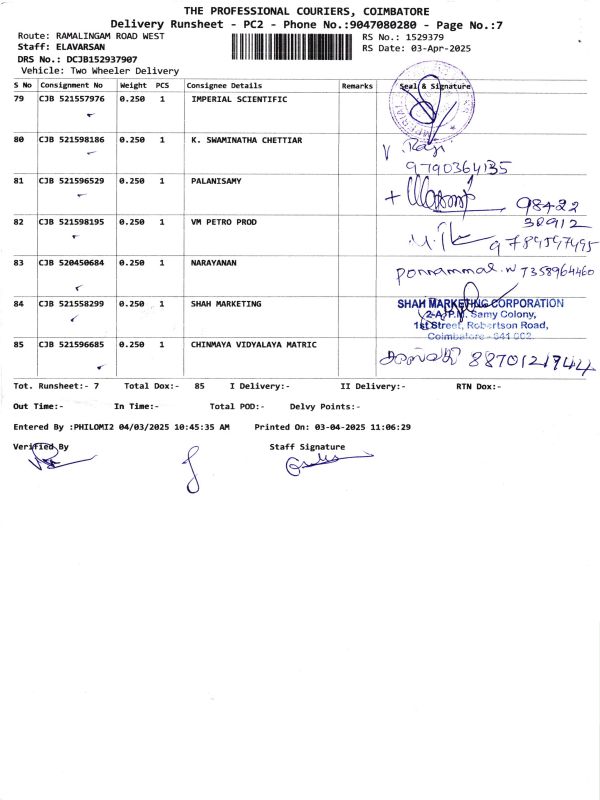 THE PROFESSIONAL COURIERS, COIMBATORE
Delivery Runsheet - PC2 - Phone No.:9047080280 - Page No.:7
Route: RAMALINGAM ROAD WEST RS No.: 1529379
Staff: ELAVARSAN RS Date: 03-Apr-2025
DRS No.: DCJB152937907
Vehicle: Two Wheeler Delivery
S No Consignment No Weight PCS Consignee Details Remarks Seal & Signature
79 CJB 521557976 0.250 1 IMPERIAL SCIENTIFIC
80 CJB 521598186 0.250 1 K. SWAMINATHA CHETTIAR
9790364135
81 CJB 521596529 0.250 1 PALANISAMY
98422
30912
82 CJB 521598195 0.250 1 VM PETRO PROD
9789597495
83 CJB 520450684 0.250 1 NARAYANAN
ponnammal.N 7358964460
84 CJB 521558299 0.250 1 SHAH MARKETING
SHAH MARKETING CORPORATION
2-A, P.M. Samy Colony,
1st Street, Robertson Road,
Coimbatore - 641 002.
85 CJB 521596685 0.250 1 CHINMAYA VIDYALAYA MATRIC
8870121744
Tot. Runsheet:- 7 Total Dox:- 85 I Delivery:- II Delivery:- RTN Dox:-
Out Time:- In Time:- Total POD:- Delvy Points:-
Entered By :PHILOMI2 04/03/2025 10:45:35 AM Printed On: 03-04-2025 11:06:29
Verified By Staff Signature